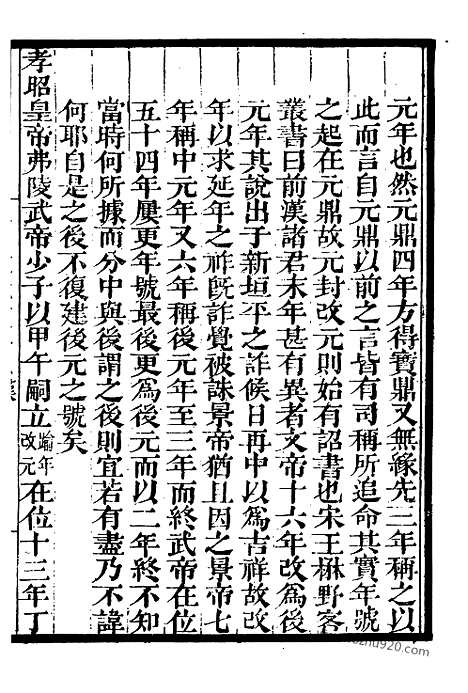 元年也然元鼎四年方得寶鼎又無緣先三年稱之以
此而言自元鼎以前之言皆有司稱所追命其實年號
之起在元鼎故元封改元則始有詔書也宋王楙野客
叢書曰前漢諸君末年甚有異者文帝十六年改為後
元年其說出于新垣平之詐候日再中以為吉祥故改
年以求延年之祚旣詐覺被誅景帝猶且因之景帝七
年稱中元年又六年稱後元年至三年而終武帝在位
五十四年屢更年號最後更為後元而以二年終不知
當時何所據而分中與後謂之後則宜若有盡乃不諱
何耶自是之後不復建後元之號矣
孝昭皇帝弗陵武帝少子以甲午嗣立踰年改元在位十三年丁